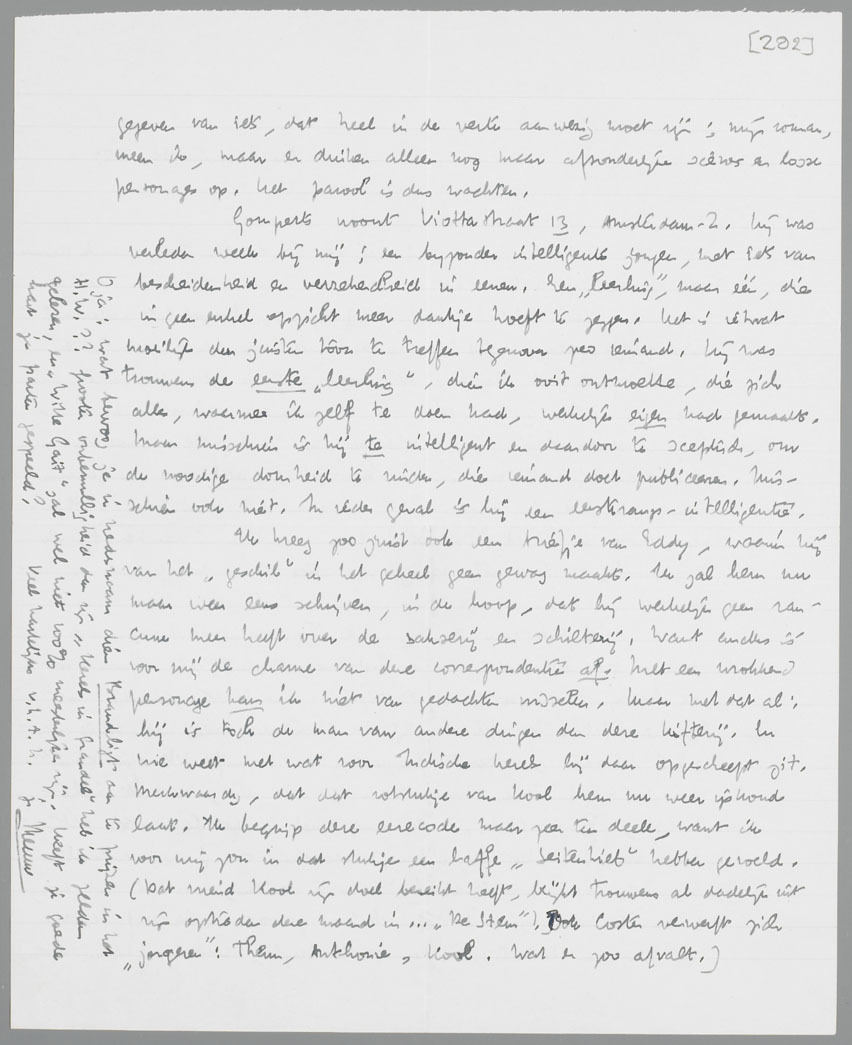 [202]
gegeven van iets, dat heel in de verte aanwezig moet zijn; mijn roman,
meen ik, maar er duiken alleen nog maar afzonderlijke scènes en losse
personages op. Het parool is dus wachten.
Gomperts woont Viottastraat 13, Amsterdam-Z. Hij was
verleden week bij mij; een byzonder intelligente jongen, met iets van
bescheidenheid en verzekerdheid in eenen. Een „leerling", maar één, die
in geen enkel opzicht meer dankje hoeft te zeggen. Het is ietwat
moeilijk den juisten toon te treffen tegenover zoo iemand. Hij was
trouwens de eerste „leerling", dien ik ooit ontmoette, die zich
alles, waarmee ik zelf te doen had, werkelijk eigen had gemaakt.
Maar misschien is hij te intelligent en daardoor te sceptisch, om
de noodige domheid te vinden, die iemand doet publiceeren. Mis-
schien ook niét. In ieder geval is hij een eersterangs-intelligentie.
Ik kreeg zoo juist ook een briefje van Eddy, waarin hij
van het „geschil" in het geheel geen gewag maakt. Ik zal hem nu
maar weer eens schrijven, in de hoop, dat hij werkelijk geen ran-
cune meer heeft over de Sakserij en Schilterij. Want anders is
voor mij de charme van deze correspondentie af. Met een wrokkend
personage kan ik niet van gedachten wisselen. Maar met dat al:
hij is toch de man van andere dingen dan deze kifterij. En
wie weet met wat voor Indische heeren hij daar opgescheept zit.
Merkwaardig, dat dat rotstukje van Kool hem nu weer ijskoud
laat. Ik begrijp deze eerecode maar zeer ten deele, want ik
voor mij zou in dat stukje een laffe „Seitenhieb" hebben gevoeld.
(Dat meid Kool zijn doel bereikt heeft, blijkt trouwens al dadelijk uit
zijn optreden deze maand in... „De Stem"). Ook Coster verwerft zich
„jongeren": Theun, Anthonie, Kool. Wat er zoo afvalt.)
O ja: wat bewoog je in hedesnaam dien Brandligt aan te prijzen in het
H.W.?? Grooter onbenulligheid dan zijn „Kerels in grandel" heb ik zelden
gelezen, en „Witte Gait" zal wel niet veel meesterlijker zijn. Heeft je goede
hart je parten gespeeld? Veel hartelijks v.h.t.h. je Menno